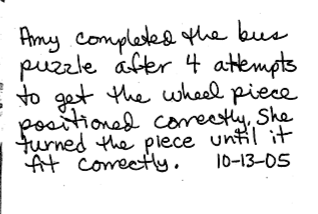 Amy completed the bus
puzzle after 4 attempts
to get the wheel piece
positioned correctly. She
turned the piece until it
fit correctly. 10-13-05